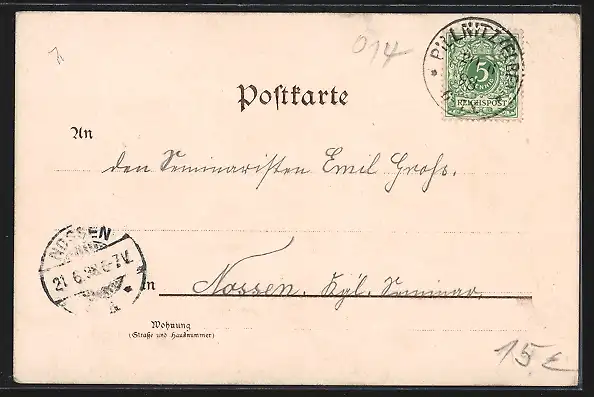 014
PILLNITZ (ELBE)
5
REICHSPOST
Postkarte
An
den Seminaristen Emil Groß.
NOSSEN
21 6. 98. 6-7V.
in Nossen. Kgl. Seminar.
Wohnung
(Straße und Hausnummer)
15 €